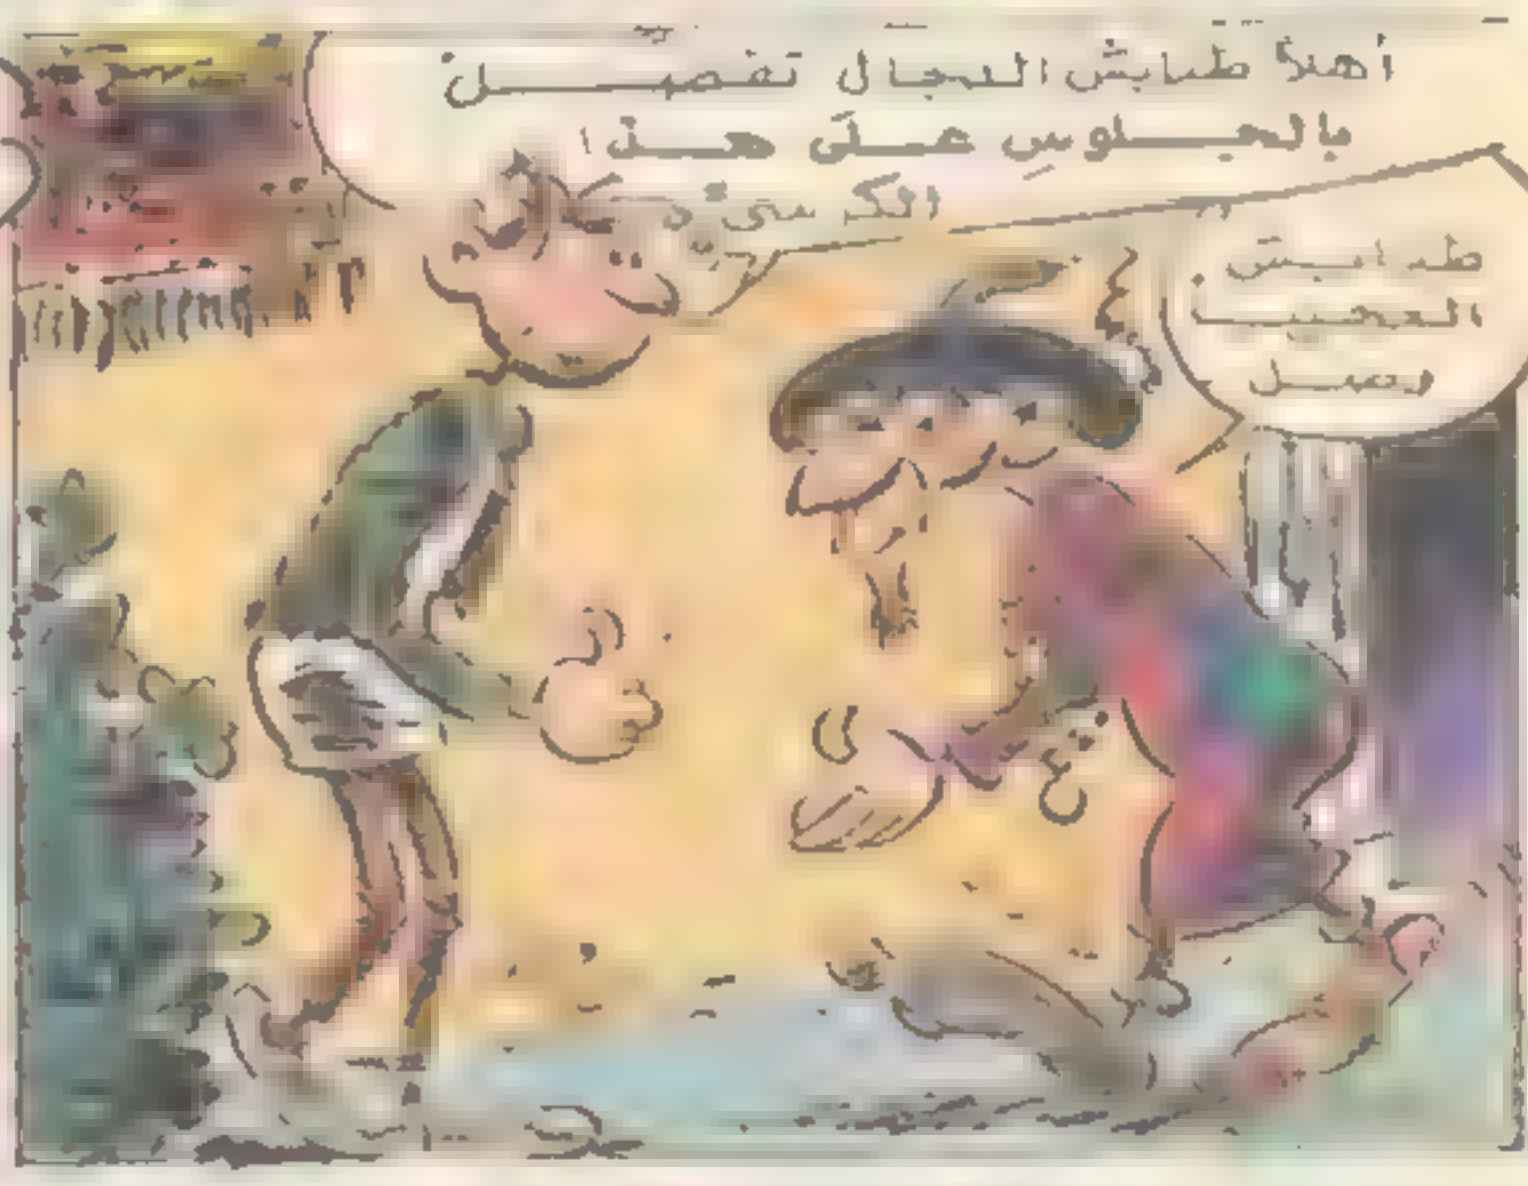 أهلاً طبابش البجال تفضل
بالجلوس على هذا
الكرسي
طبابش
العجيب
وصل